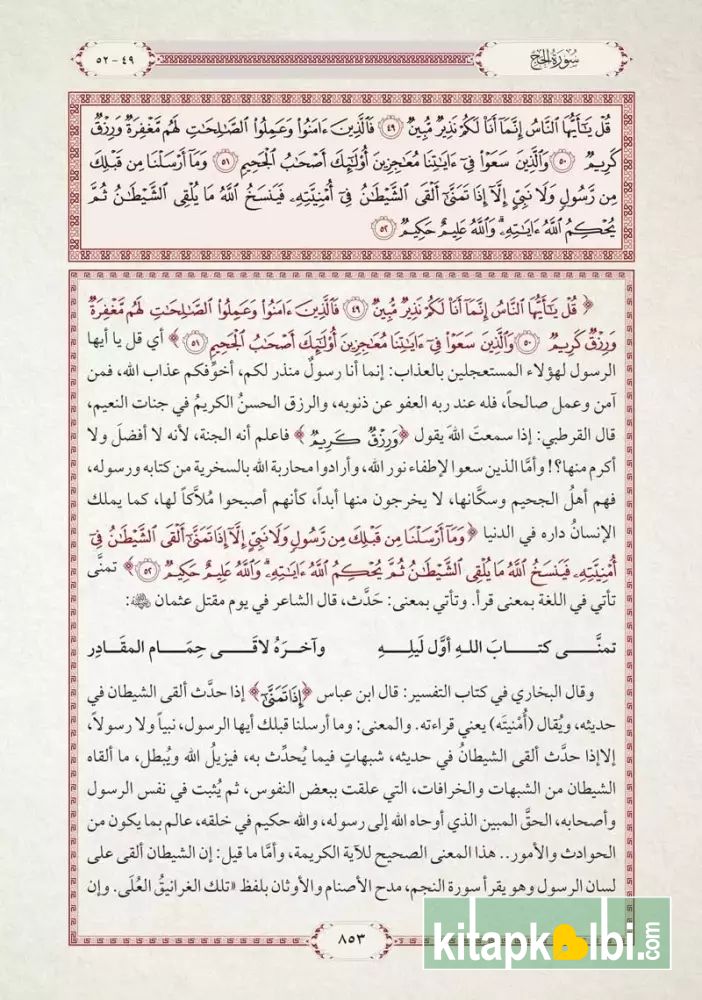 سُورَةُ الحَجّ
٤٩ - ٥٢
قُلْ يَٰٓأَيُّهَا ٱلنَّاسُ إِنَّمَآ أَنَا۠ لَكُمْ نَذِيرٌ مُّبِينٌ ٤٩ فَٱلَّذِينَ ءَامَنُوا۟ وَعَمِلُوا۟ ٱلصَّٰلِحَٰتِ لَهُم مَّغْفِرَةٌ وَرِزْقٌ
كَرِيمٌ ٥٠ وَٱلَّذِينَ سَعَوْا۟ فِىٓ ءَايَٰتِنَا مُعَٰجِزِينَ أُو۟لَٰٓئِكَ أَصْحَٰبُ ٱلْجَحِيمِ ٥١ وَمَآ أَرْسَلْنَا مِن قَبْلِكَ
مِن رَّسُولٍ وَلَا نَبِىٍّ إِلَّآ إِذَا تَمَنَّىٰٓ أَلْقَى ٱلشَّيْطَٰنُ فِىٓ أُمْنِيَّتِهِۦ فَيَنسَخُ ٱللَّهُ مَا يُلْقِى ٱلشَّيْطَٰنُ ثُمَّ
يُحْكِمُ ٱللَّهُ ءَايَٰتِهِۦ ۗ وَٱللَّهُ عَلِيمٌ حَكِيمٌ ٥٢
﴿ قُلْ يَٰٓأَيُّهَا ٱلنَّاسُ إِنَّمَآ أَنَا۠ لَكُمْ نَذِيرٌ مُّبِينٌ ٤٩ فَٱلَّذِينَ ءَامَنُوا۟ وَعَمِلُوا۟ ٱلصَّٰلِحَٰتِ لَهُم مَّغْفِرَةٌ
وَرِزْقٌ كَرِيمٌ ٥٠ وَٱلَّذِينَ سَعَوْا۟ فِىٓ ءَايَٰتِنَا مُعَٰجِزِينَ أُو۟لَٰٓئِكَ أَصْحَٰبُ ٱلْجَحِيمِ ٥١ ﴾ أي قل يا أيها
الرسول لهؤلاء المستعجلين بالعذاب: إنما أنا رسولٌ منذر لكم، أخوِّفكم عذاب الله، فمن
آمن وعمل صالحاً، فله عند ربه العفو عن ذنوبه، والرزق الحسنُ الكريمُ في جنات النعيم،
قال القرطبي: إذا سمعتَ اللهَ يقول ﴿وَرِزْقٌ كَرِيمٌ ﴾ فاعلم أنه الجنة، لأنه لا أفضلَ ولا
أكرم منها؟! وأمَّا الذين سعوا لإطفاء نور الله، وأرادوا محاربة الله بالسخرية من كتابه ورسوله،
فهم أهلُ الجحيم وسكَّانها، لا يخرجون منها أبداً، كأنهم أصبحوا مُلاَّكاً لها، كما يملك
الإنسانُ داره في الدنيا ﴿وَمَآ أَرْسَلْنَا مِن قَبْلِكَ مِن رَّسُولٍ وَلَا نَبِىٍّ إِلَّآ إِذَا تَمَنَّىٰٓ أَلْقَى ٱلشَّيْطَٰنُ فِىٓ
أُمْنِيَّتِهِۦ فَيَنسَخُ ٱللَّهُ مَا يُلْقِى ٱلشَّيْطَٰنُ ثُمَّ يُحْكِمُ ٱللَّهُ ءَايَٰتِهِۦ ۗ وَٱللَّهُ عَلِيمٌ حَكِيمٌ ٥٢ ﴾ تمنَّى
تأتي في اللغة بمعنى قرأ. وتأتي بمعنى: حَدَّث، قال الشاعر في يوم مقتل عثمان رضي الله عنه:
تمنَّـــى كتـــابَ اللـهِ أوَّل لَيلِـــهِ وآخـرَهُ لاقَـــى حِمَـــام المقَـادِرِ
وقال البخاري في كتاب التفسير: قال ابن عباس ﴿إِذَا تَمَنَّىٰٓ﴾ إذا حدَّث ألقى الشيطان في
حديثه، ويُقال (أُمْنيتَه) يعني قراءته. والمعنى: وما أرسلنا قبلك أيها الرسول، نبياً ولا رسولاً،
إلاإذا حدَّث ألقى الشيطانُ في حديثه، شبهاتٍ فيما يُحدِّث به، فيزيلُ الله ويُبطل، ما ألقاه
الشيطان من الشبهات والخرافات، التي علقت ببعض النفوس، ثم يُثبت في نفس الرسول
وأصحابه، الحقَّ المبين الذي أوحاه الله إلى رسوله، والله حكيم في خلقه، عالم بما يكون من
الحوادث والأمور.. هذا المعنى الصحيح للآية الكريمة، وأمَّا ما قيل: إن الشيطان ألقى على
لسان الرسول وهو يقرأ سورة النجم، مدح الأصنام والأوثان بلفظ «تلك الغرانيقُ العُلَى. وإن
٨٥٣
kitapkalbi.com